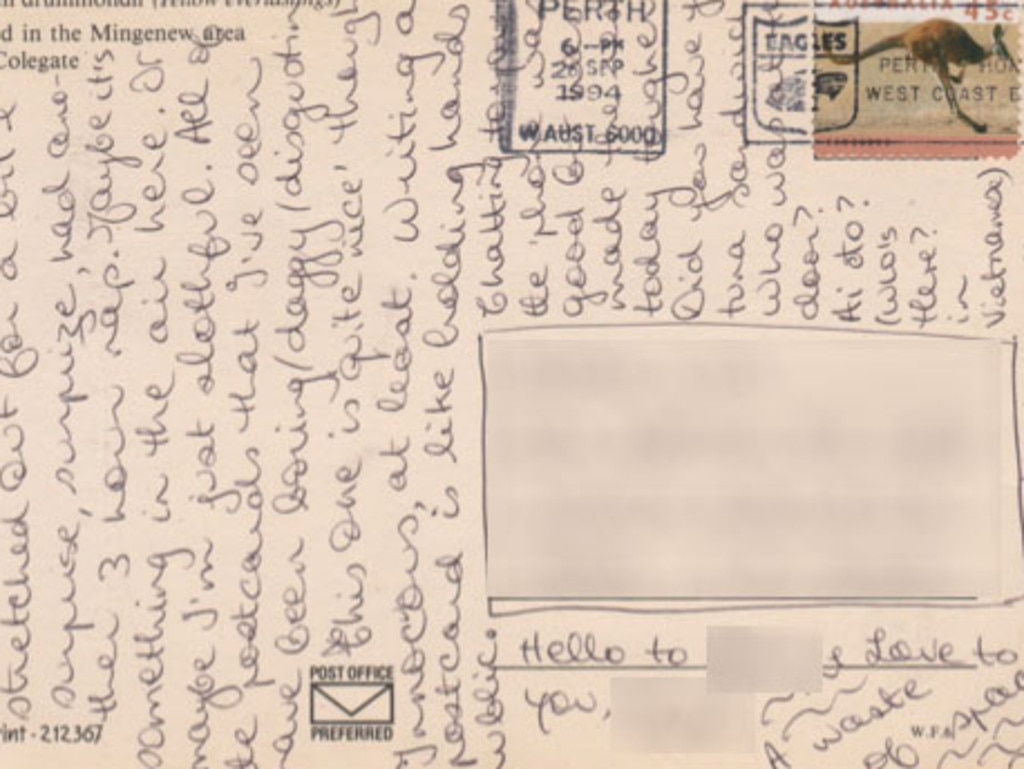 drummondii (Yellow everlastings)
d in the Mingenew area
Colegate
stretched out for a bit &
surprise, surprise, had ano-
ther 3 hour nap. Maybe it's
something in the air here. Or
maybe I'm just slothful. All of
the postcards that I've seen
have been boring/daggy/disgusting
This one is quite 'nice' though
Innocuous, at least. Writing a
postcard is like holding hands
public.
Chatting to
the pho was
good
made
today
Did you have t
tuna sandwich
who was at the
door?
Ai đó?
(who's
there?
in
Vietnamese)
PERTH
6-PM
26 SEP
1994
W.AUST 6000
EAGLES
AUSTRALIA 45c
PERTH
WEST COAST E
Hello to
Love to
you,
A waste
of space
POST OFFICE
PREFERRED
int - 212367
W.F.6